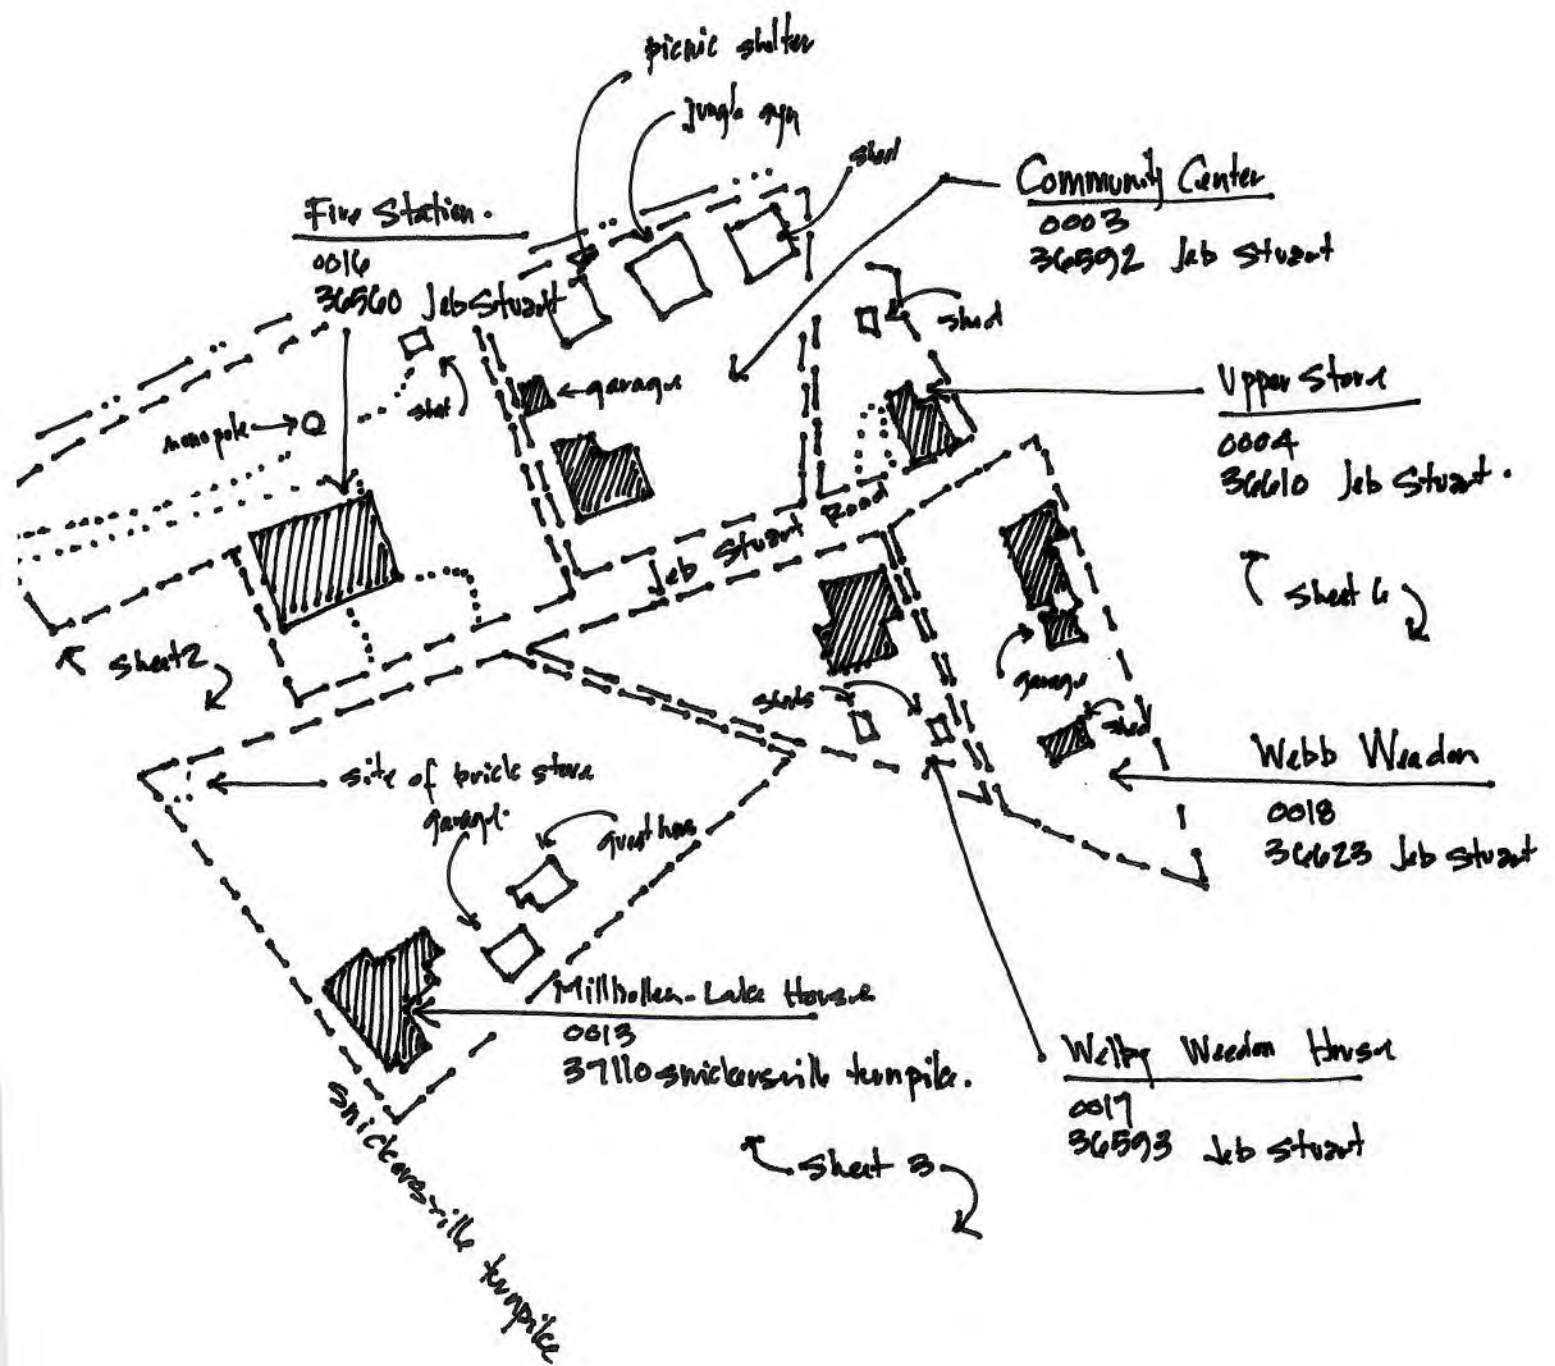 picnic shelter
jungle gym
shed
Community Center
0003
36592 Jeb Stuart
Fire Station.
0016
36560 Jeb Stuart
shed
Upper Store
0004
36610 Jeb Stuart.
garage
shed
monopole
Jeb Stuart Road
Sheet 6
sheet 2
garage
sheds
shed
Webb Weadon
0018
36623 Jeb Stuart
site of brick store
garage.
guest hous
Millhollen-Lake House
0013
37110 snickersville turnpike.
Welby Weedon House
0017
36593 Jeb Stuart
Sheet 3
Snickersville turnpike